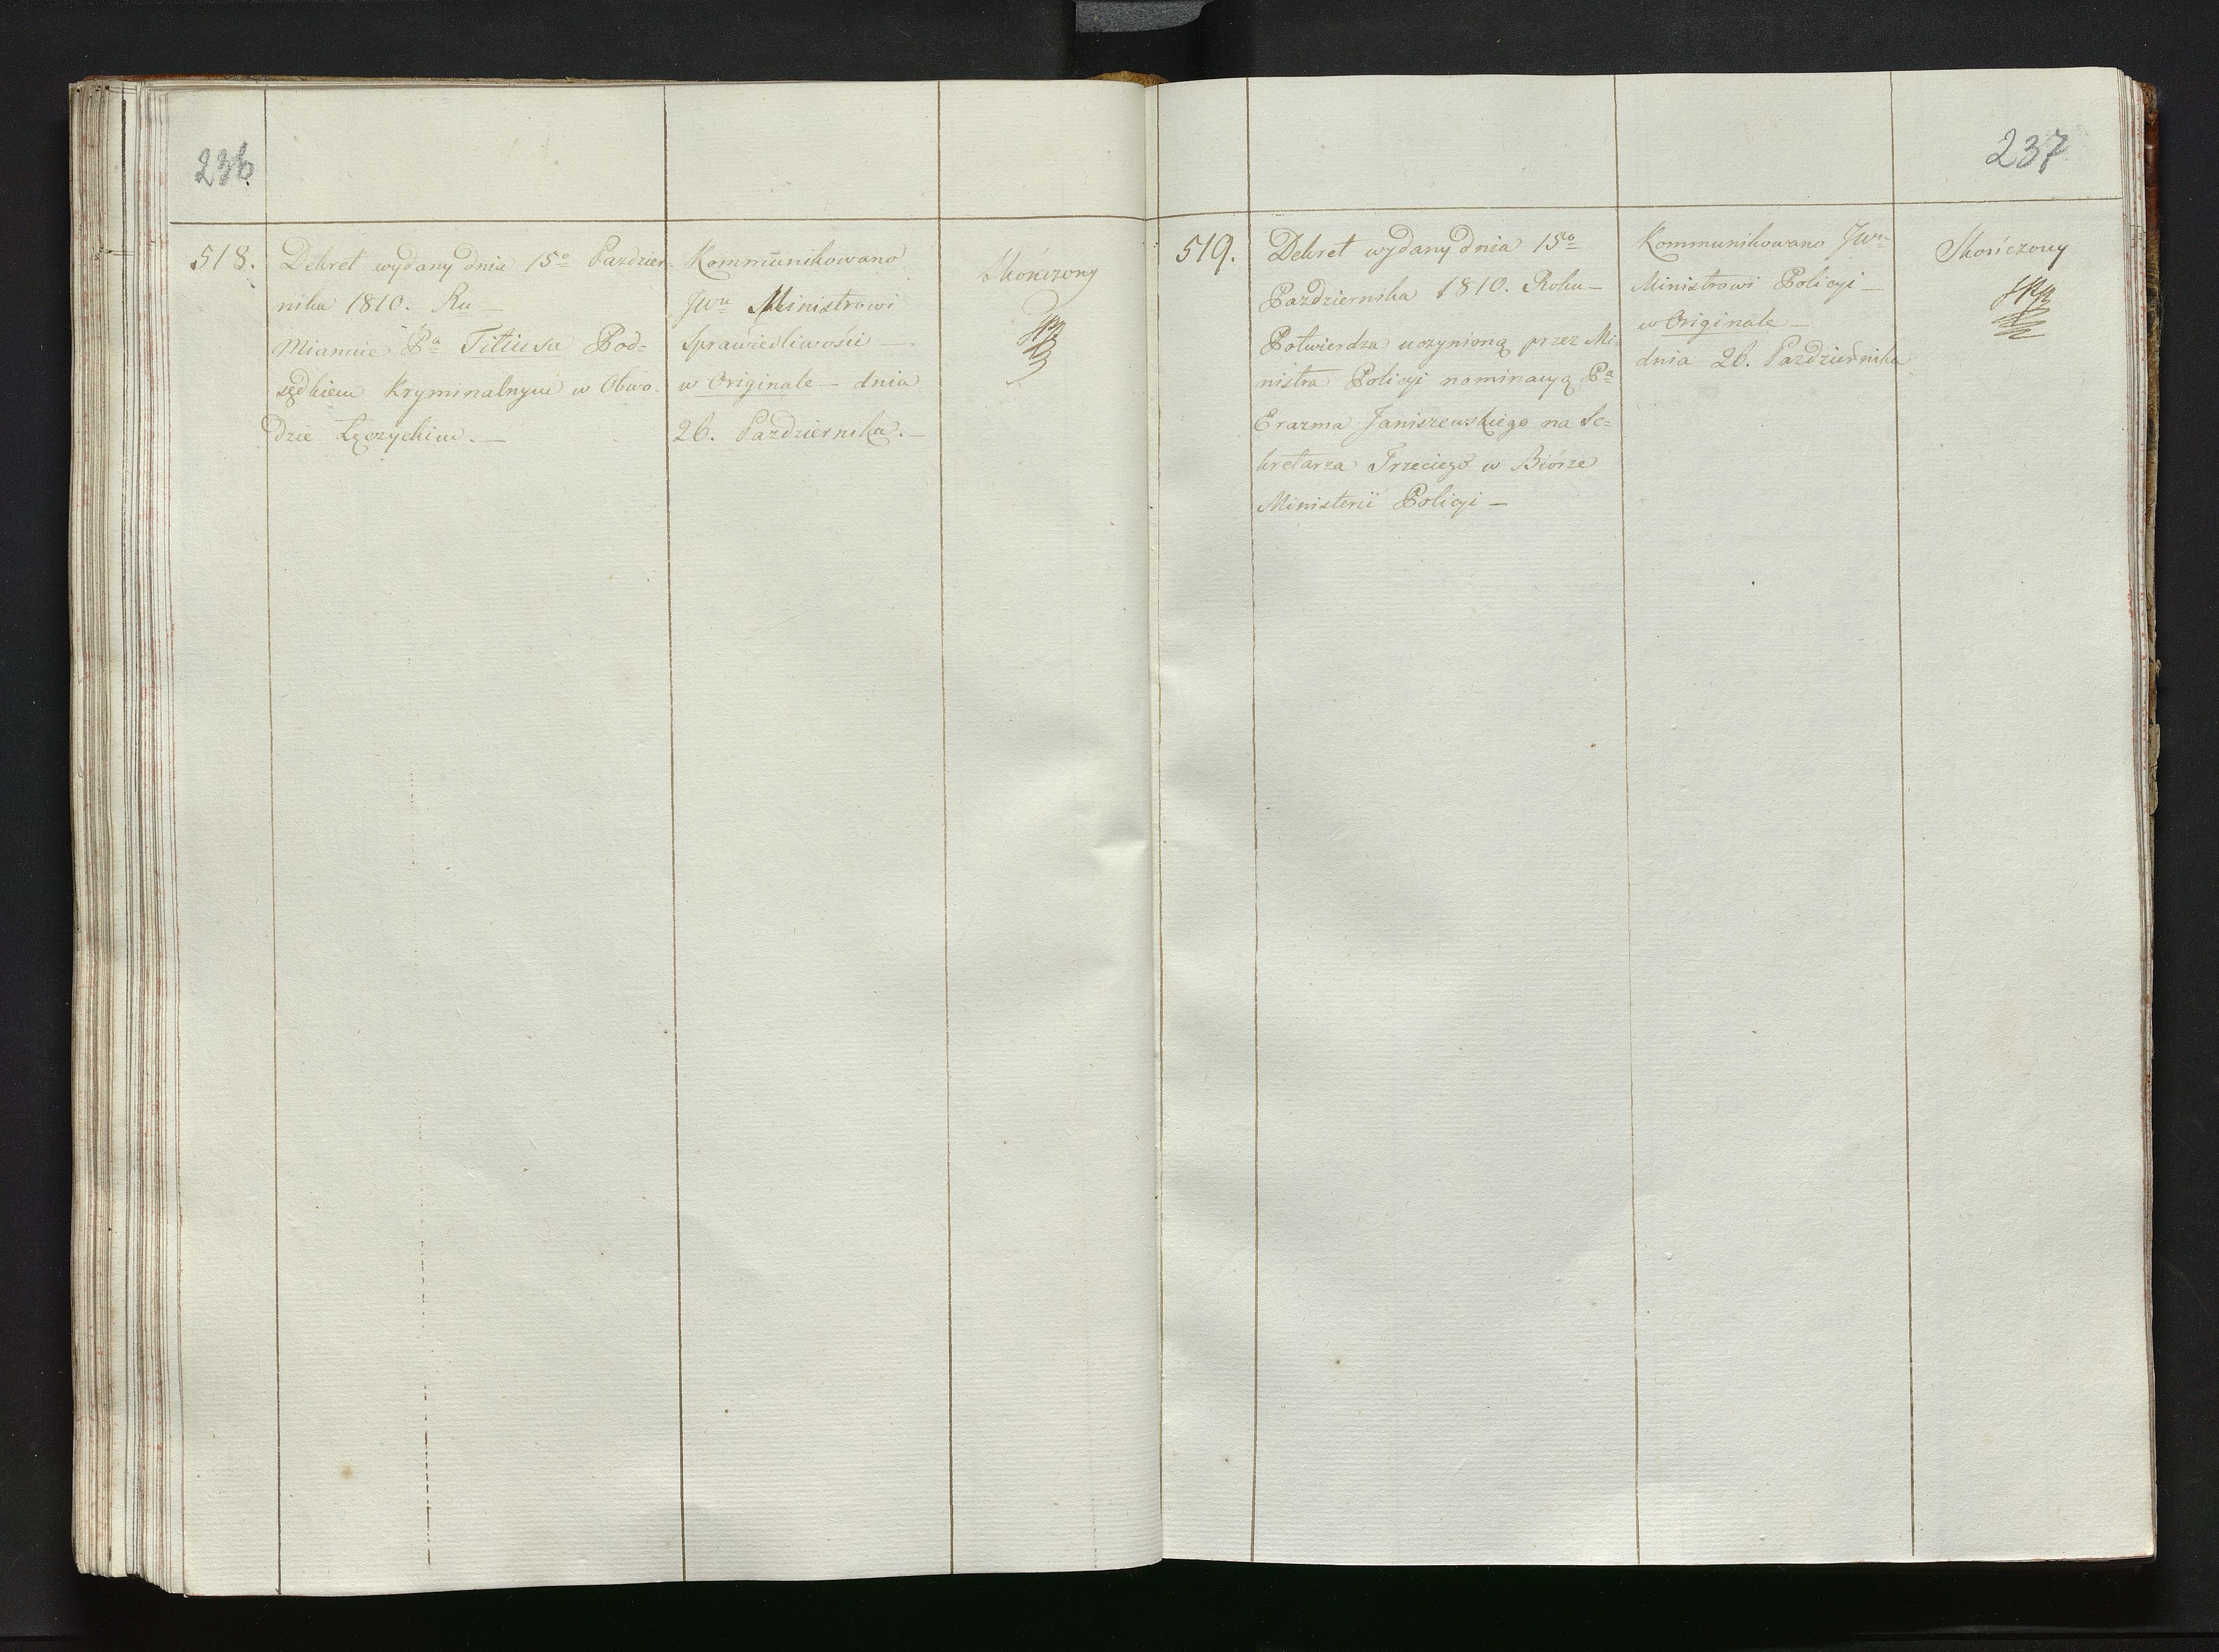 236
518.
Dekret wydany dnia 15º Paździer-
nika 1810. Ru —
Mianuie Pª Titiusa Pod=
sędkiem Kryminalnym w Obwo-
dzie Łęczyckim. —
Kommunikowano
JWu Ministrowi
Sprawiedliwości —
w Originale — dnia
26. Października. —
Skończony
237
519.
Dekret wydany dnia 15º
Października 1810. Roku —
Potwierdza uczynioną przez Mi-
nistra Policyi nominacyą Pª
Erazma Janiszewskiego na Se=
kretarza Trzeciego w Biórze
Ministerii Policyi —
Kommunikowano JWu
Ministrowi Policyi —
w Originale —
dnia 26. Października
Skończony